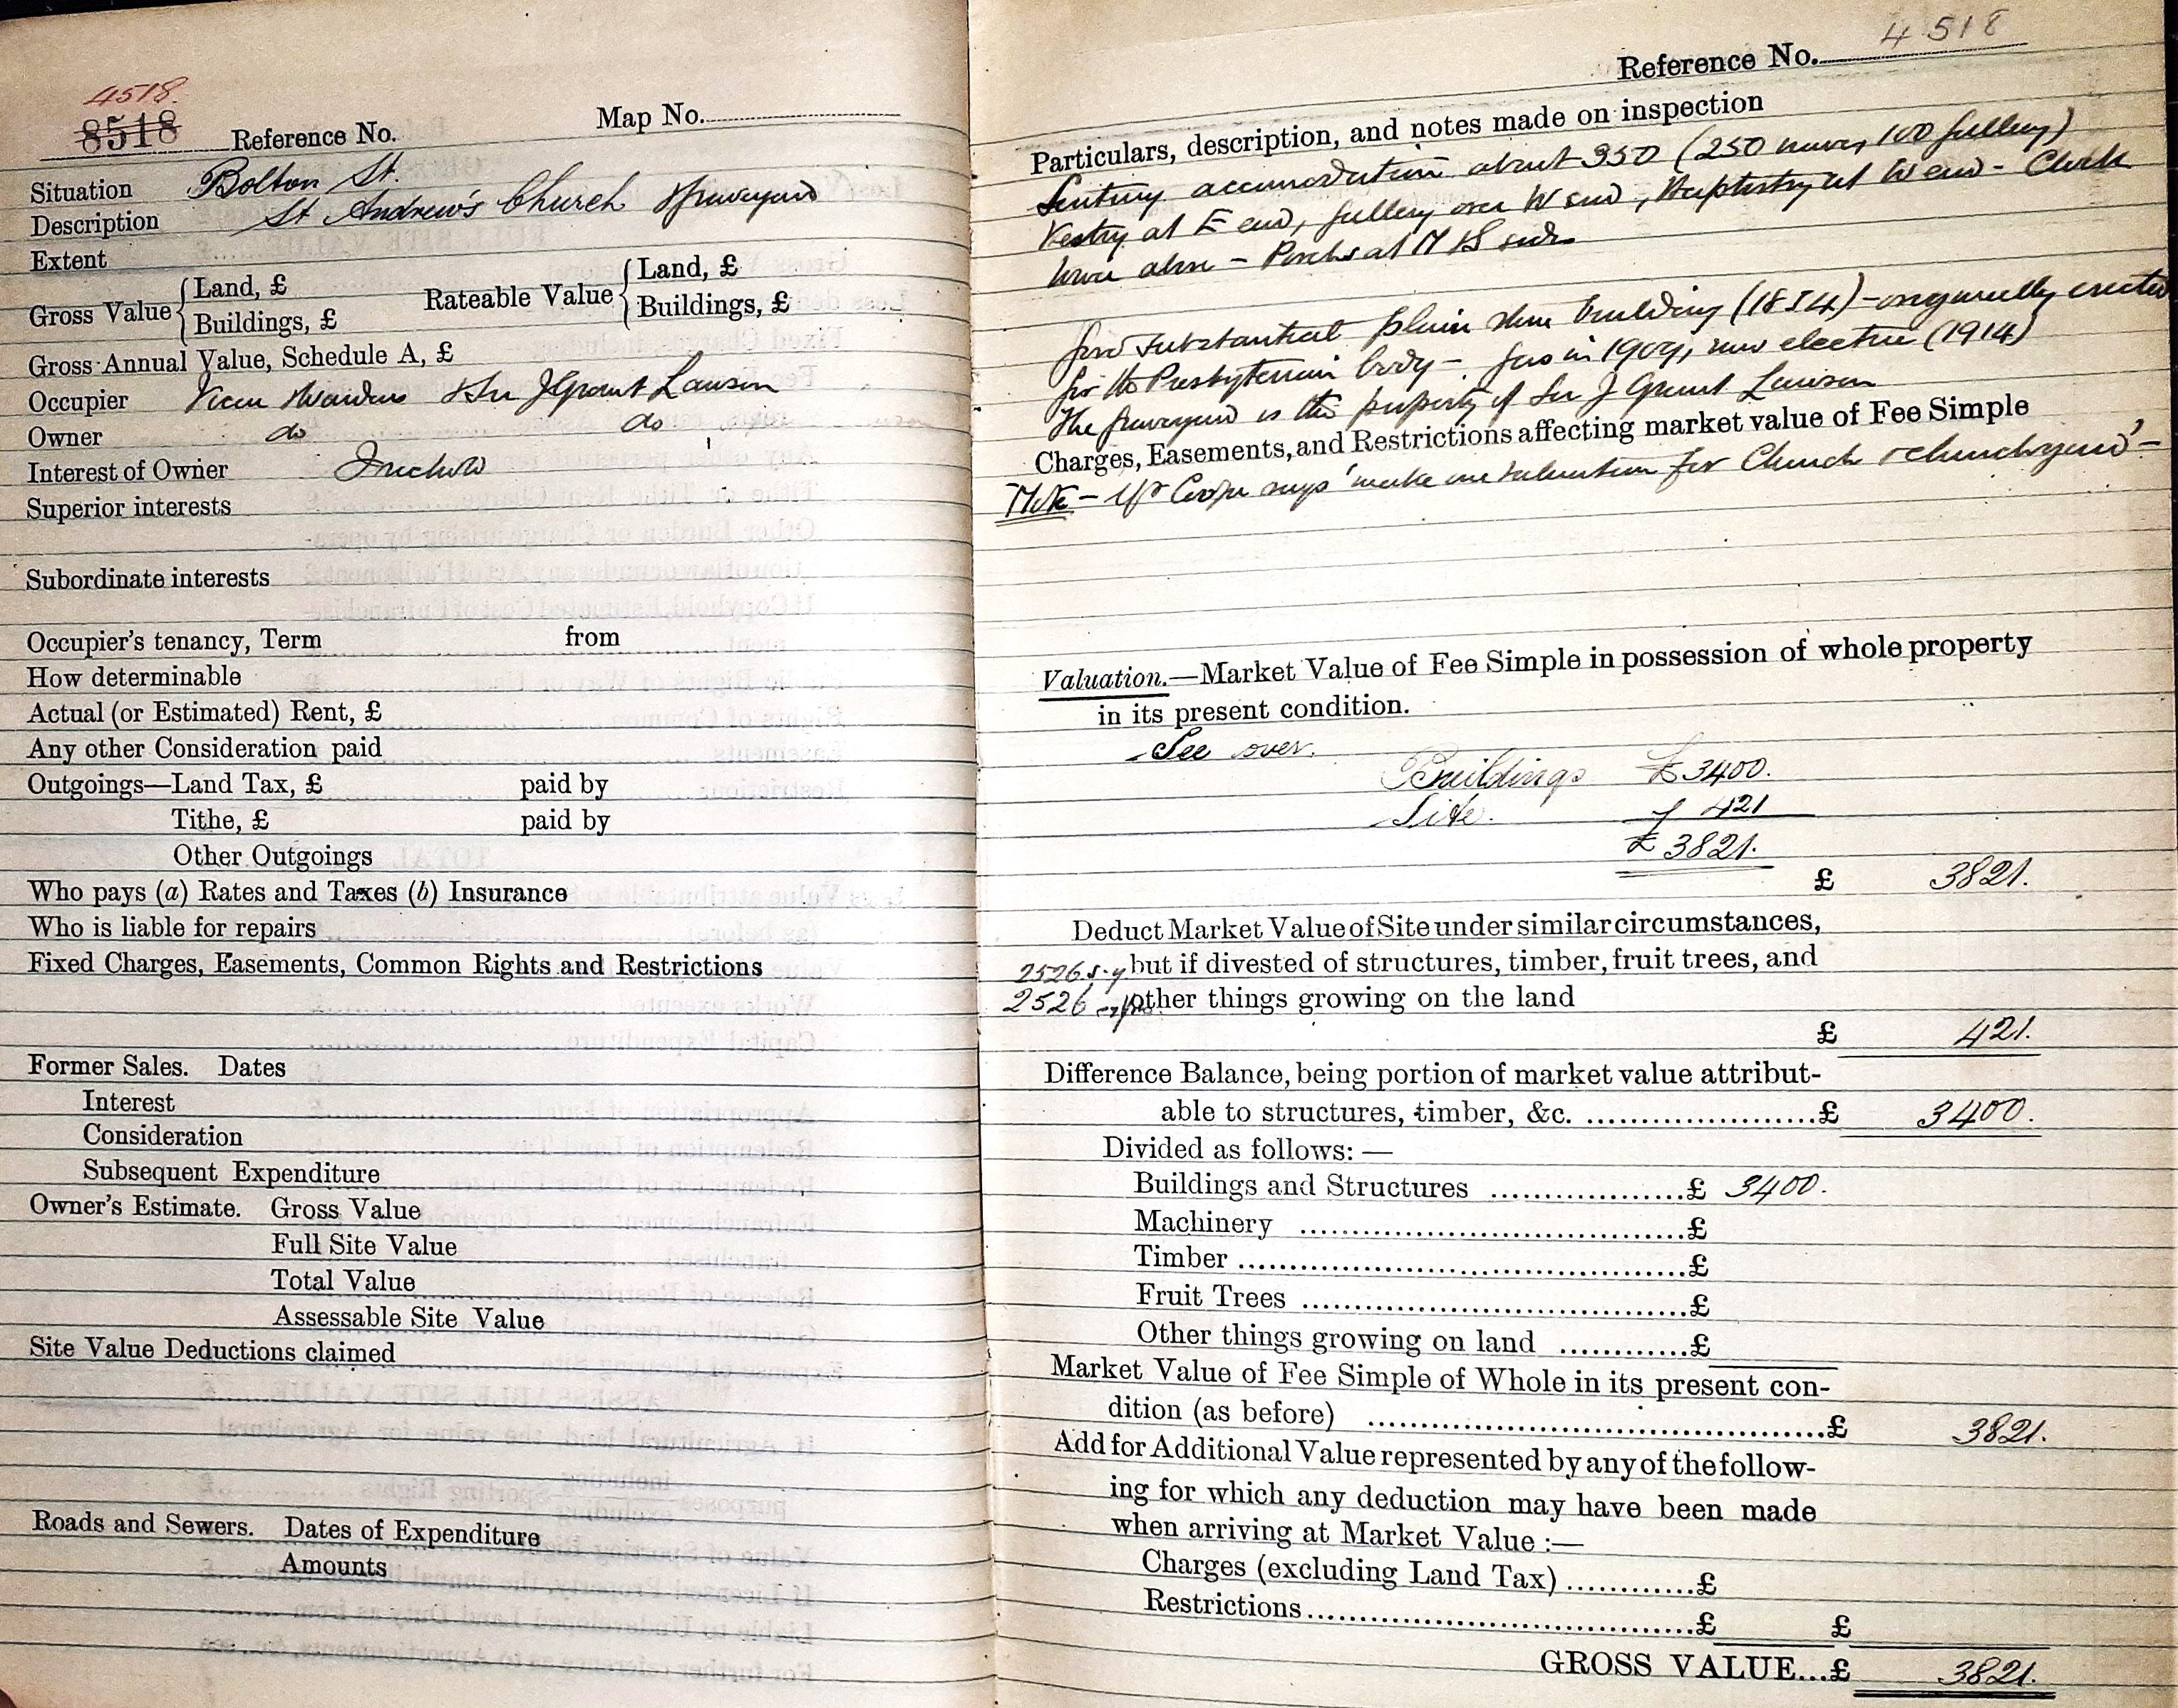 4518.
8518 Reference No. Map No.
Situation Bolton St.
Description St Andrew's Church & graveyard
Extent
Gross Value { Land, £ Rateable Value { Land, £
Buildings, £ Buildings, £
Gross Annual Value, Schedule A, £
Occupier Vicar & Wardens & Sir J Grant Lawson
Owner do do
Interest of Owner Freehold
Superior interests
Subordinate interests
Occupier's tenancy, Term from
How determinable
Actual (or Estimated) Rent, £
Any other Consideration paid
Outgoings—Land Tax, £ paid by
Tithe, £ paid by
Other Outgoings
Who pays (a) Rates and Taxes (b) Insurance
Who is liable for repairs
Fixed Charges, Easements, Common Rights and Restrictions
Former Sales. Dates
Interest
Consideration
Subsequent Expenditure
Owner's Estimate. Gross Value
Full Site Value
Total Value
Assessable Site Value
Site Value Deductions claimed
Roads and Sewers. Dates of Expenditure
Amounts
Reference No. 4518
Particulars, description, and notes made on inspection
Seating accomodation about 350 (250 nave, 100 gallery)
Vestry at E end, gallery over W end, Baptistry at W end - Clock
tower above - Porch at N & S side
Good substantial plain stone building (1854) - originally erected
for the Presbyterian body - gas in 1909, now electric (1914)
The graveyard is the property of Sir J Grant Lawson
Charges, Easements, and Restrictions affecting market value of Fee Simple
Note - Mr Cooper says 'make one valuation for Church & churchyard' -
Valuation.—Market Value of Fee Simple in possession of whole property
in its present condition.
See over.
Buildings £3400.
Site. £ 421
£ 3821.
£ 3821.
Deduct Market Value of Site under similar circumstances,
2526 s.y but if divested of structures, timber, fruit trees, and
2526 other things growing on the land
£ 421.
Difference Balance, being portion of market value attribut-
able to structures, timber, &c. ........................£ 3400.
Divided as follows: —
Buildings and Structures ...................£ 3400.
Machinery .......................................£
Timber .............................................£
Fruit Trees .......................................£
Other things growing on land ............£
Market Value of Fee Simple of Whole in its present con-
dition (as before) ..............................................£ 3821.
Add for Additional Value represented by any of the follow-
ing for which any deduction may have been made
when arriving at Market Value :—
Charges (excluding Land Tax) ............£
Restrictions.......................................£ £
GROSS VALUE...£ 3821.